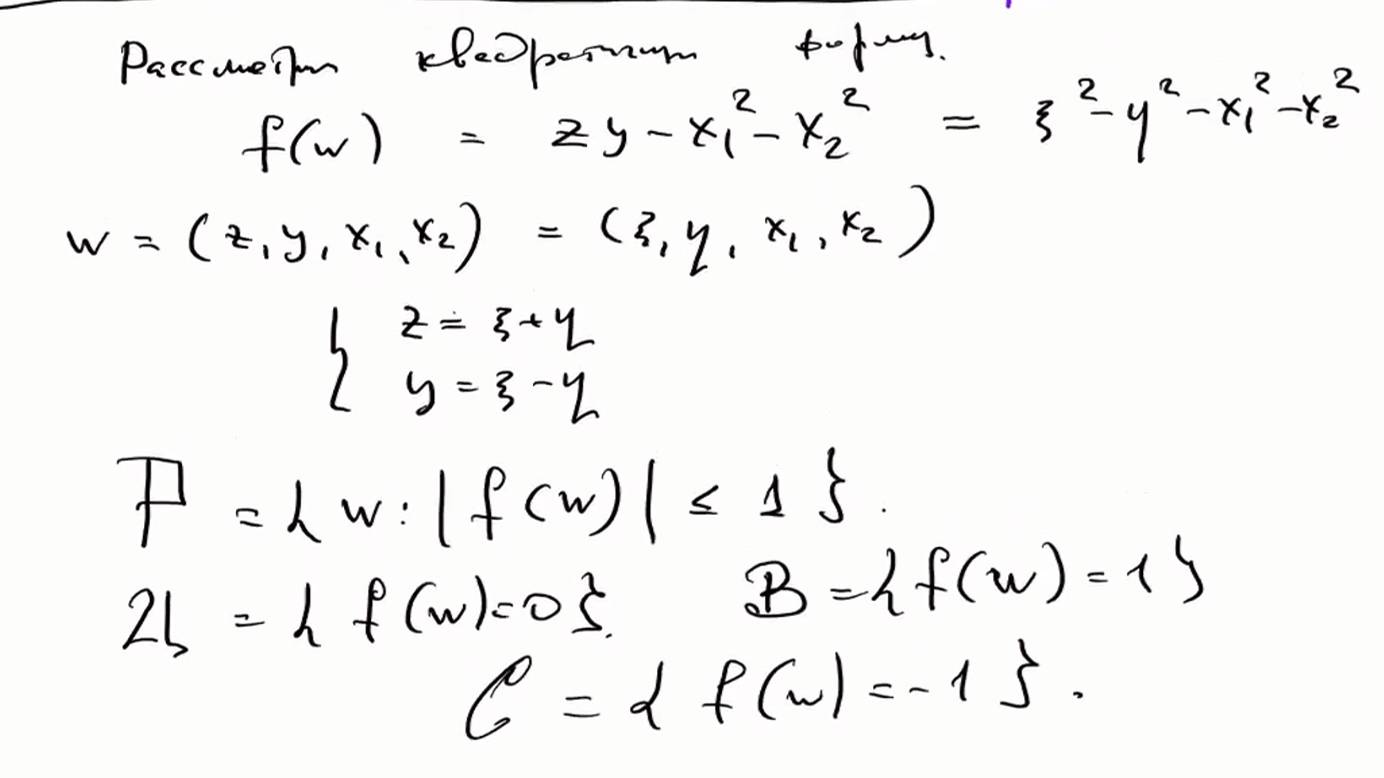 Рассмотрим квадратичную форму.
f(w) = zy − x₁² − x₂² = ξ² − η² − x₁² − x₂²
w = (z, y, x₁, x₂) = (ξ, η, x₁, x₂)
{ z = ξ + η
y = ξ − η
P = { w : |f(w)| ≤ 1 }.
𝔄 = { f(w) = 0 }. B = { f(w) = 1 }
C = { f(w) = −1 }.